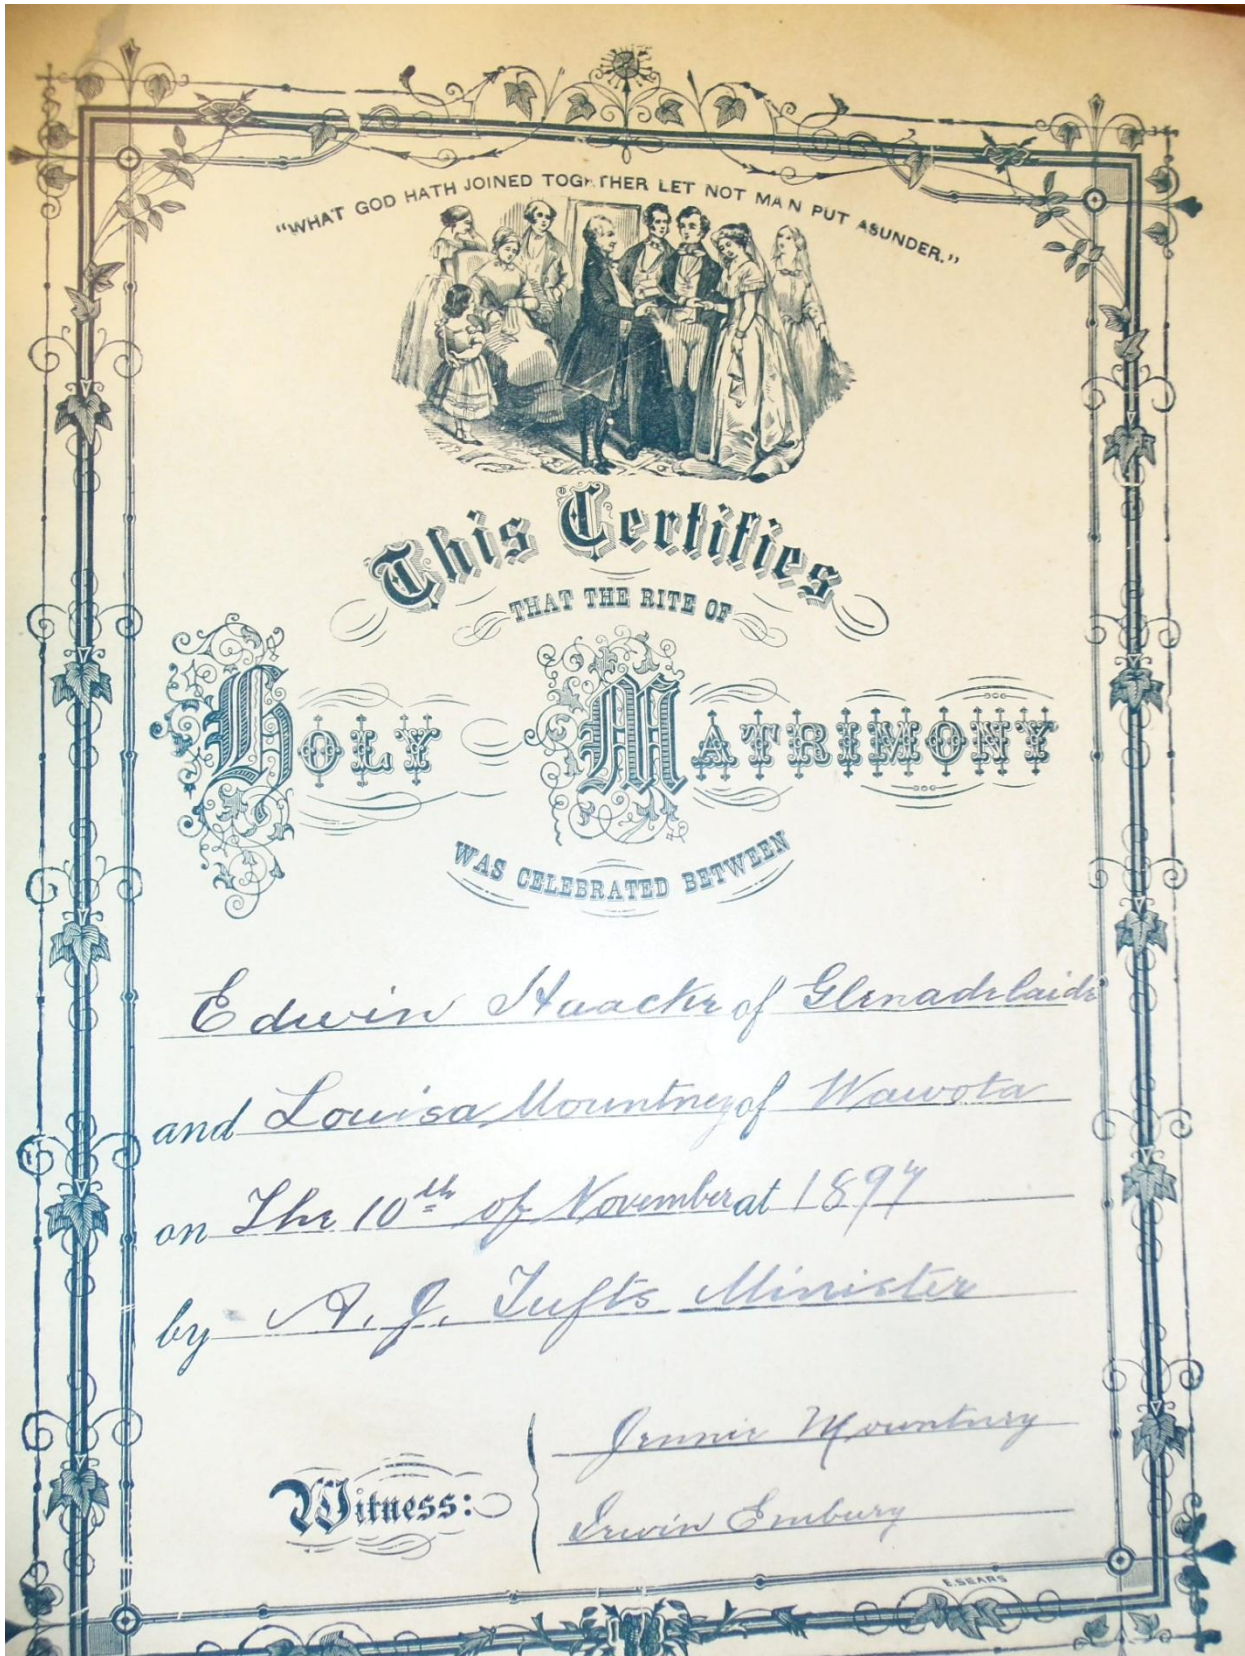 "WHAT GOD HATH JOINED TOGETHER LET NOT MAN PUT ASUNDER."
This Certifies
THAT THE RITE OF
HOLY MATRIMONY
WAS CELEBRATED BETWEEN
Edwin Haacke of Glenadelaide
and Louisa Mountney of Wawota
on The 10th of November at 1897
by A. J. Tufts Minister
Jennie Mountney
Witness:
Irwin Embury
E. SEARS